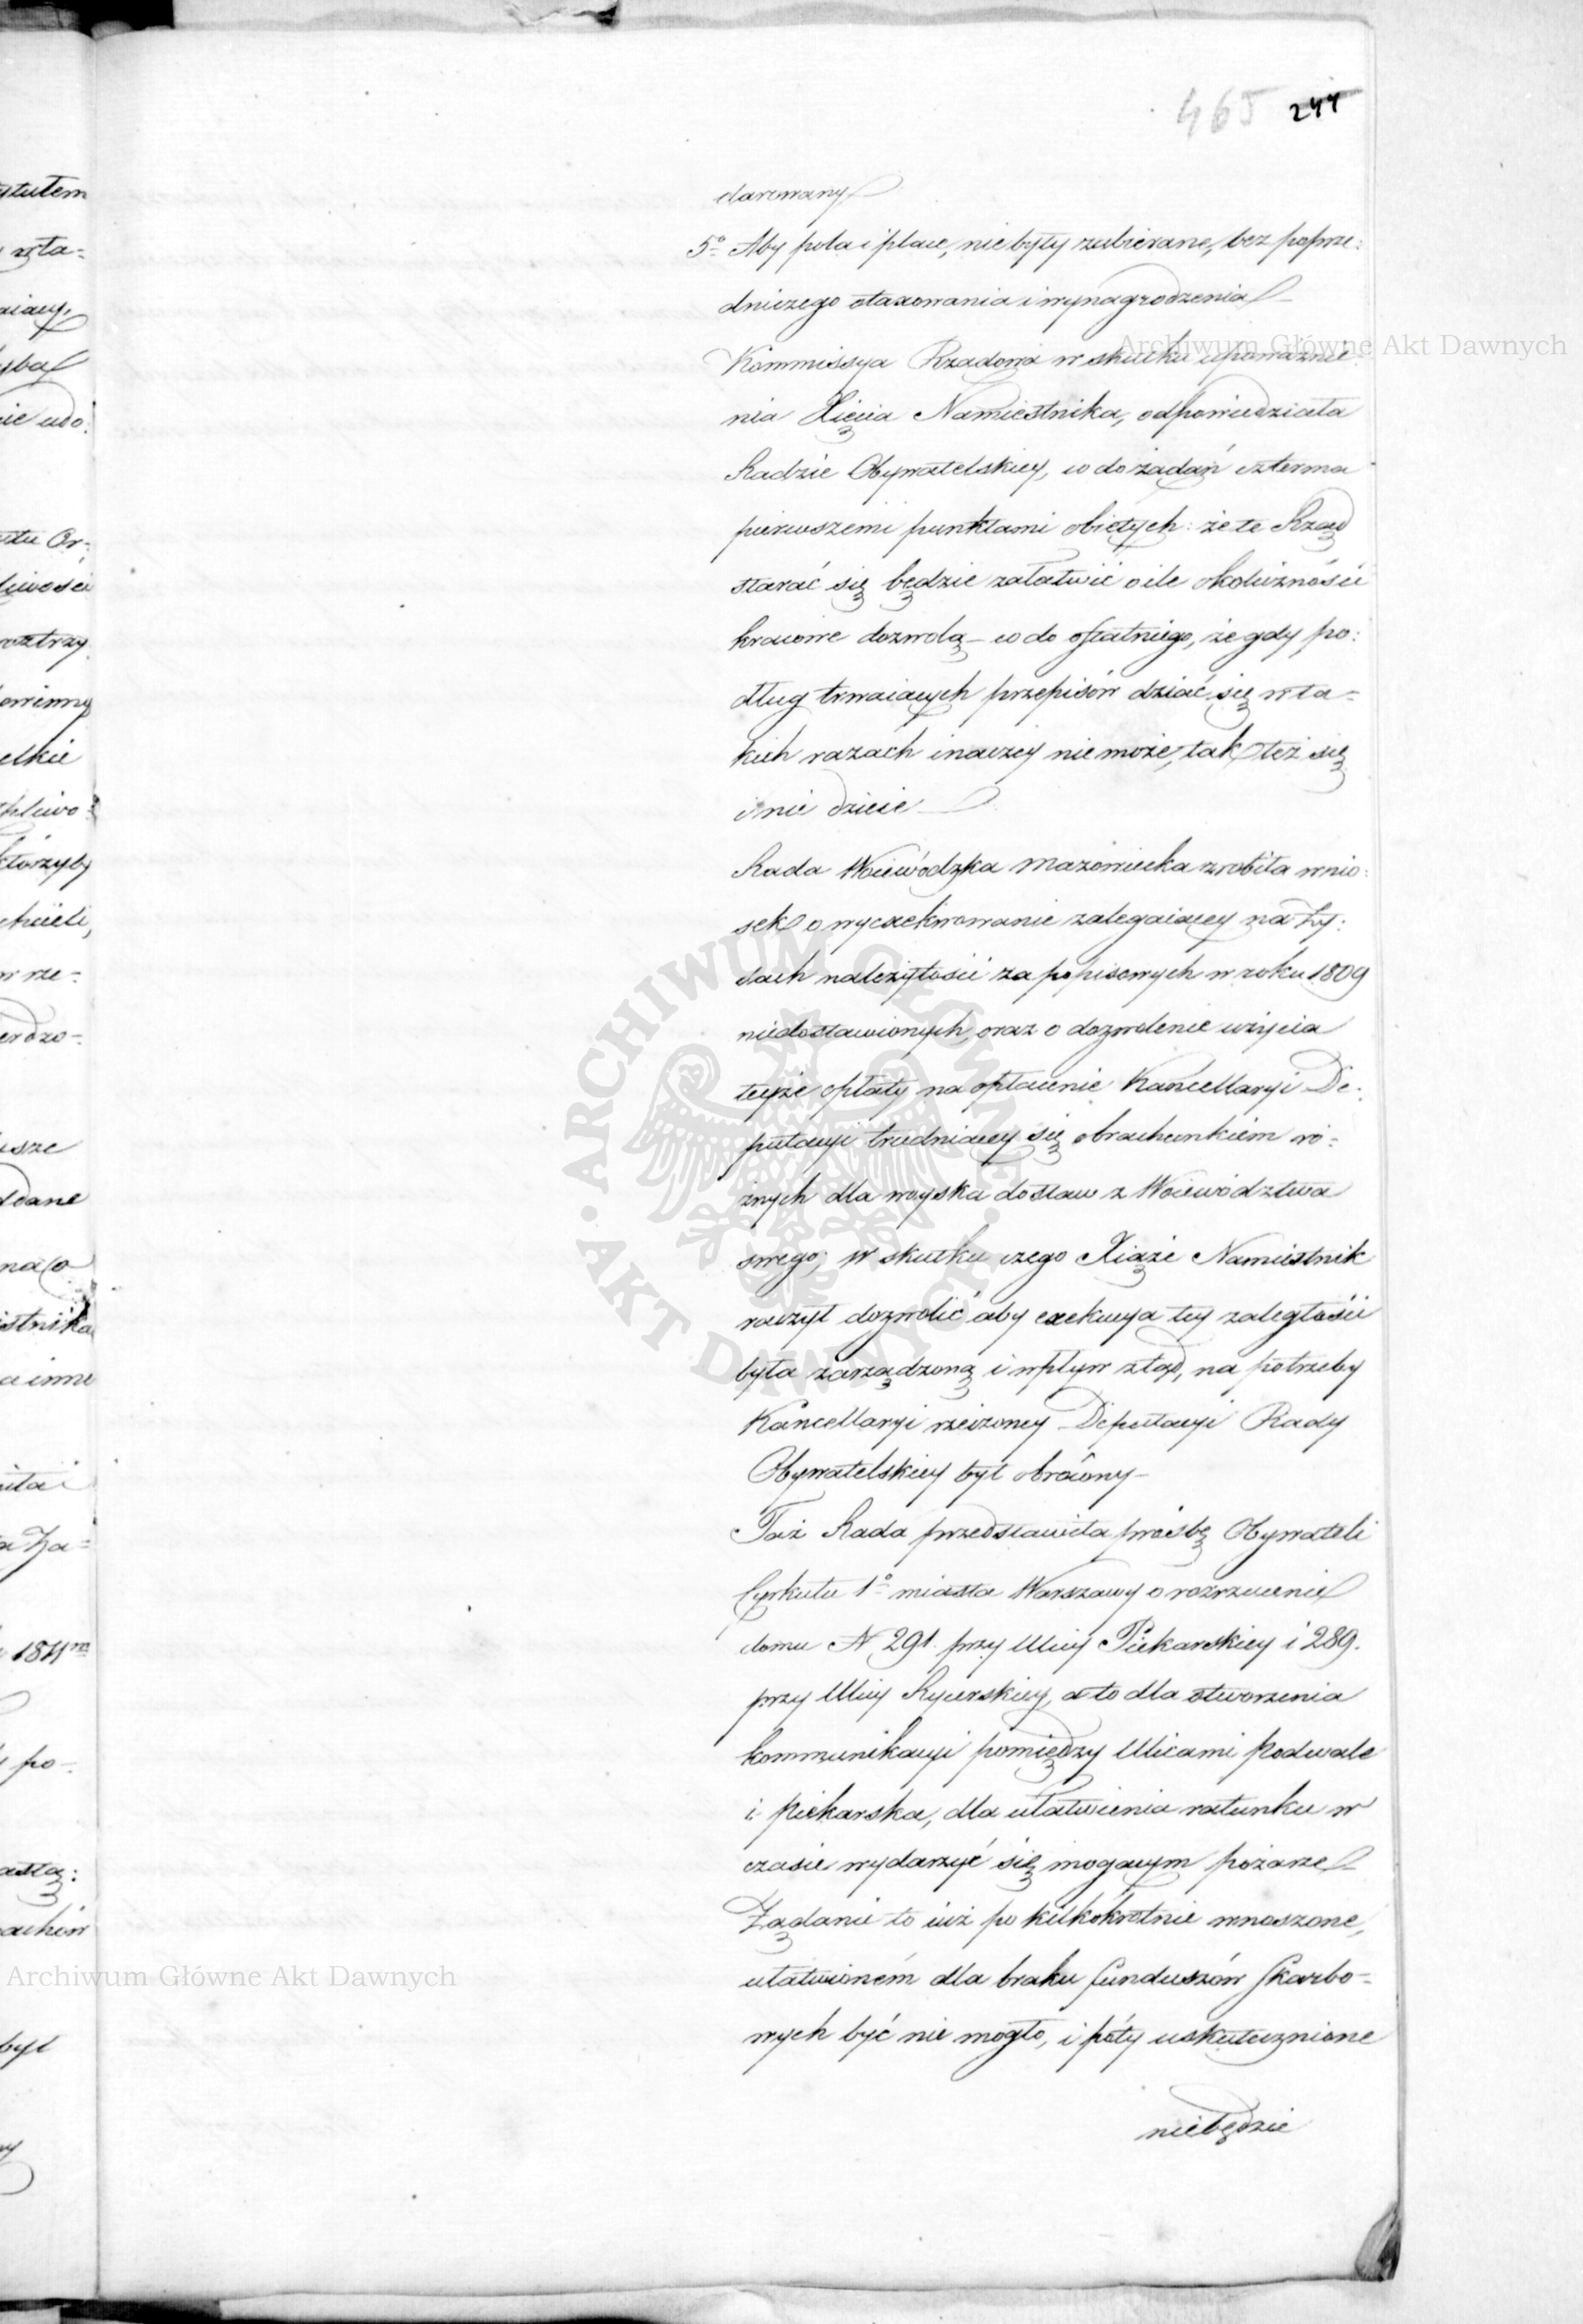 465 244
darowany
5o Aby pola i place, nie były zabierane, bez poprze:
dniczego otaxowania i wynagrodzenia
Kommissya Rządowa w skutku upoważnie:
nia Xięcia Namiestnika, odpowiedziała
Radzie Obywatelskiey, co do żądań czterma
pierwszemi punktami obiętych: że te Rząd
starać się będzie załatwić o ile okoliczności
kraiowe dozwolą – co do ostatniego, że gdy po:
dług trwaiących przepisów dziać się w ta=
kich razach inaczey nie może, tak też się
i nie dzieie
Rada Woiewódzka Mazowiecka zrobiła wnio:
sek o wyexekwowanie zalegaiącey na Ży:
dach należytości za popisowych w roku 1809
niedostawionych, oraz o dozwolenie użycia
teyże opłaty na opłacenie Kancellaryi De:
putacyi trudniącey się obrachunkiem ró=
żnych dla woyska dostaw z Woiewództwa
swego, w skutku czego Xiąże Namiestnik
raczył dozwolić aby exekucya tey zaległości
była zarządzoną i wpływ ztąd, na potrzeby
Kancellaryi rzeczoney Deputacyi Rady
Obywatelskiey był obrócony –
Taż Rada przedstawiła prośbę Obywateli
Cyrkułu 1o miasta Warszawy o rozrzucenie
domu N 291. przy Ulicy Piekarskiey i 289.
przy Ulicy Rycerskiey, a to dla otworzenia
kommunikacyi pomiędzy Ulicami Podwale
i Piekarska, dla ułatwienia ratunku w
czasie wydarzyć się mogącym pożarze
Żądanie to iuż po kilkokrotnie wnoszone,
ułatwioném dla braku funduszów Skarbo=
wych być nie mogło, i póty uskutecznione
niebędzie
Archiwum Główne Akt Dawnych
Archiwum Główne Akt Dawnych
ARCHIWUM GŁÓWNE AKT DAWNYCH